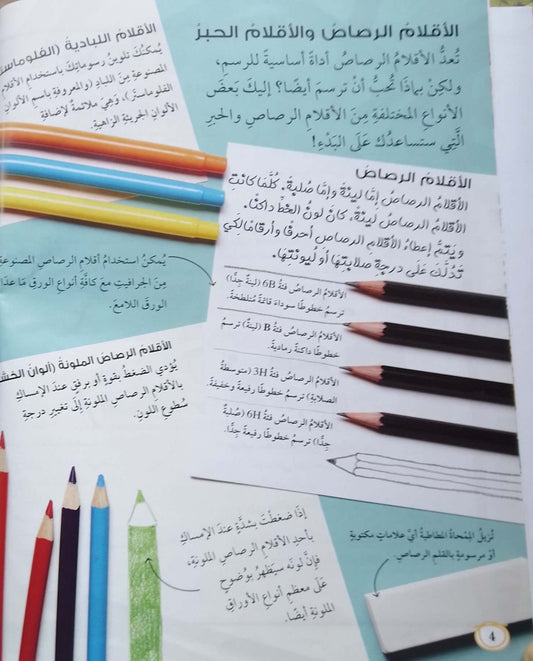 الأقلامُ الرصاصُ والأقلامُ الحبرُ
تُعدُّ الأقلامُ الرصاصُ أداةً أساسيةً للرسمِ،
ولكِنْ بماذَا تُحبُّ أنْ ترسمَ أيضًا؟ إليكَ بَعضَ
الأنواعِ المختلفةِ مِنَ الأقلامِ الرصاصِ والحبرِ
الَّتِي ستساعدُكَ عَلَى البَدْءِ!
الأقلامُ اللباديةُ (الفلوماستر
يُمكنُكَ تلوينُ رسوماتِكَ باستخدامِ الأقلامِ
المصنوعةِ مِنَ اللبادِ (والمعروفةِ باسمِ الألوانِ
الفلوماستر)، وَهِيَ ملائمةٌ لإضافةِ
الألوانِ الجريئةِ الزاهيةِ.
الأقلامُ الرصاصُ
الأقلامُ الرصاصُ إمَّا ليِّنةٌ وإمَّا صُلبةٌ. كُلَّمَا كانَتِ
الأقلامُ الرصاصُ ليِّنةً، كانَ لونُ الخطِّ داكنًا.
ويَتِمُّ إعطاءُ الأقلامِ الرصاصِ أحرفًا وأرقامًا لِكَيْ
تدُلَّكَ عَلَى درجةِ صلابتِهَا أو لُيونتِهَا.
الأقلامُ الرصاصُ فئةُ 6B (ليِّنةٌ جِدًّا)
ترسمُ خطوطًا سوداءَ قاتمةً مُتلطِّخةً.
الأقلامُ الرصاصُ فئةُ B (ليِّنةٌ) ترسمُ
خطوطًا داكنةً رماديةً.
الأقلامُ الرصاصُ فئةُ 3H (متوسطةُ
الصلابةِ) ترسمُ خطوطًا رفيعةً وخفيفةً.
الأقلامُ الرصاصُ فئةُ 6H (صُلبةٌ
جِدًّا) ترسمُ خطوطًا رفيعةً جِدًّا.
يُمكنُ استخدامُ أقلامِ الرصاصِ المصنوعةِ
مِنَ الجرافيتِ معَ كافَّةِ أنواعِ الورقِ مَا عدَا
الورقَ اللامعَ.
الأقلامُ الرصاصُ الملونةُ (ألوانُ الخش
يُؤدِي الضغطُ بقوةٍ أو برفقٍ عندَ الإمساكِ
بالأقلامِ الرصاصِ الملونةِ إلَى تغييرِ درجةِ
سُطوعِ اللونِ.
إذَا ضغطْتَ بشدَّةٍ عندَ الإمساكِ
بأحدِ الأقلامِ الرصاصِ الملونةِ،
فإنَّ لونَهُ سيَظهرُ بوُضوحٍ
عَلَى معظمِ أنواعِ الأوراقِ
الملونةِ أيضًا.
تُزيلُ المِمْحَاةُ المطاطيةُ أيَّ علاماتٍ مكتوبةٍ
أوْ مرسومةٍ بالقلمِ الرصاصِ.
4